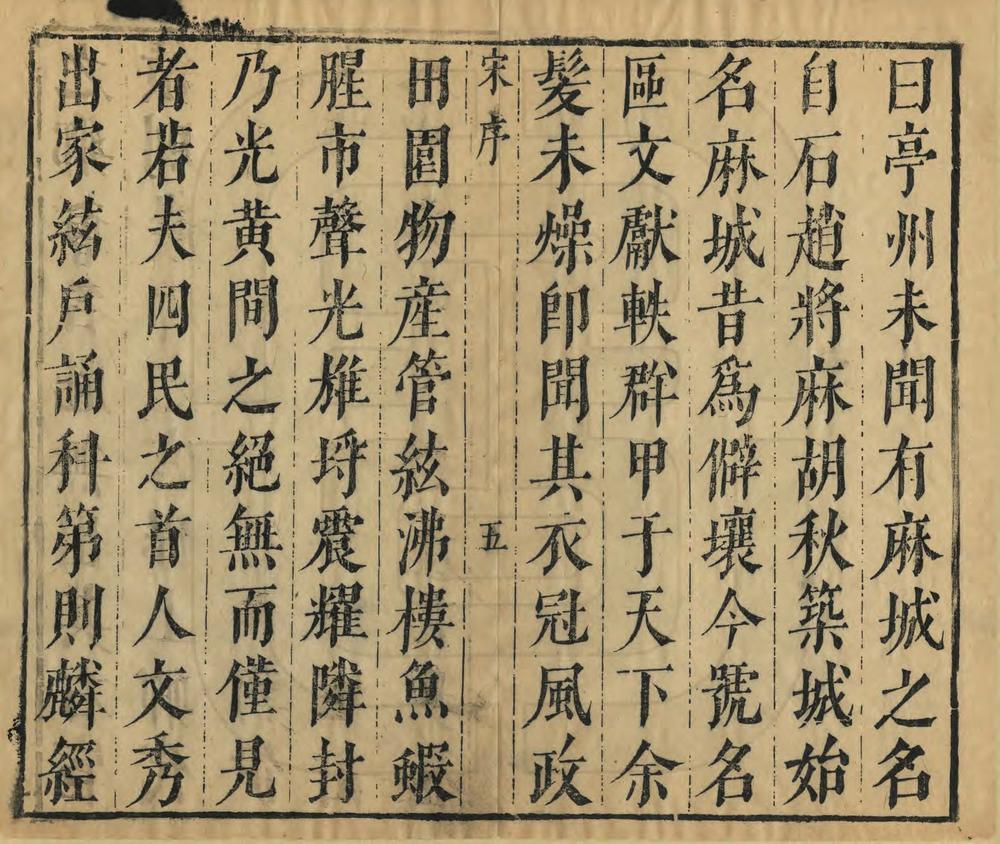 曰亭州未聞有麻城之名
自石趙將麻胡秋築城始
名麻城昔爲僻壤今號名
區文獻軼群甲于天下余
髮未燥卽聞其衣冠風政
宋序 五
田園物産管絃沸樓魚蝦
腥市聲光雄埒震耀隣封
乃光黄間之絕無而僅見
者若夫四民之首人文秀
出家絃戶誦科第則麟經